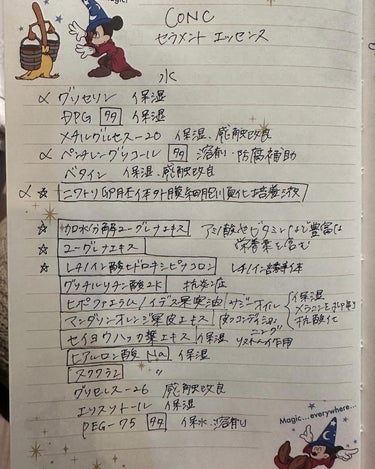 Magic!
CONC
セラメント エッセンス
水
α グリセリン 保湿
DPG 多価 保湿
メチルグルセス-20 保湿、感触改良
α ペンチレングリコール 多価 溶剤・防腐補助
ベタイン 保湿、感触改良
α ☆ ニワトリ胚体外膜細胞順化培養液
☆ 加水分解ユーグレナエキス アミノ酸やビタミンなど豊富な
☆ ユーグレナエキス 栄養素を含む
☆ レチノイン酸ヒドロキシピナコロン レチノイン誘導体
グリチルリチン酸2K 抗炎症
ヒポファエラムノイデス果実油 サジーオイル 保湿
マンダリンオレンジ果皮エキス 皮フコンディショニング 抗酸化
セイヨウハッカ葉エキス 保湿 作用
ヒアルロン酸Na 保湿
スクワラン 〃
グリセレス-26 感触改良
エリスリトール 保湿
PEG-75 多価 保水、溶剤
Magic...everywhere...